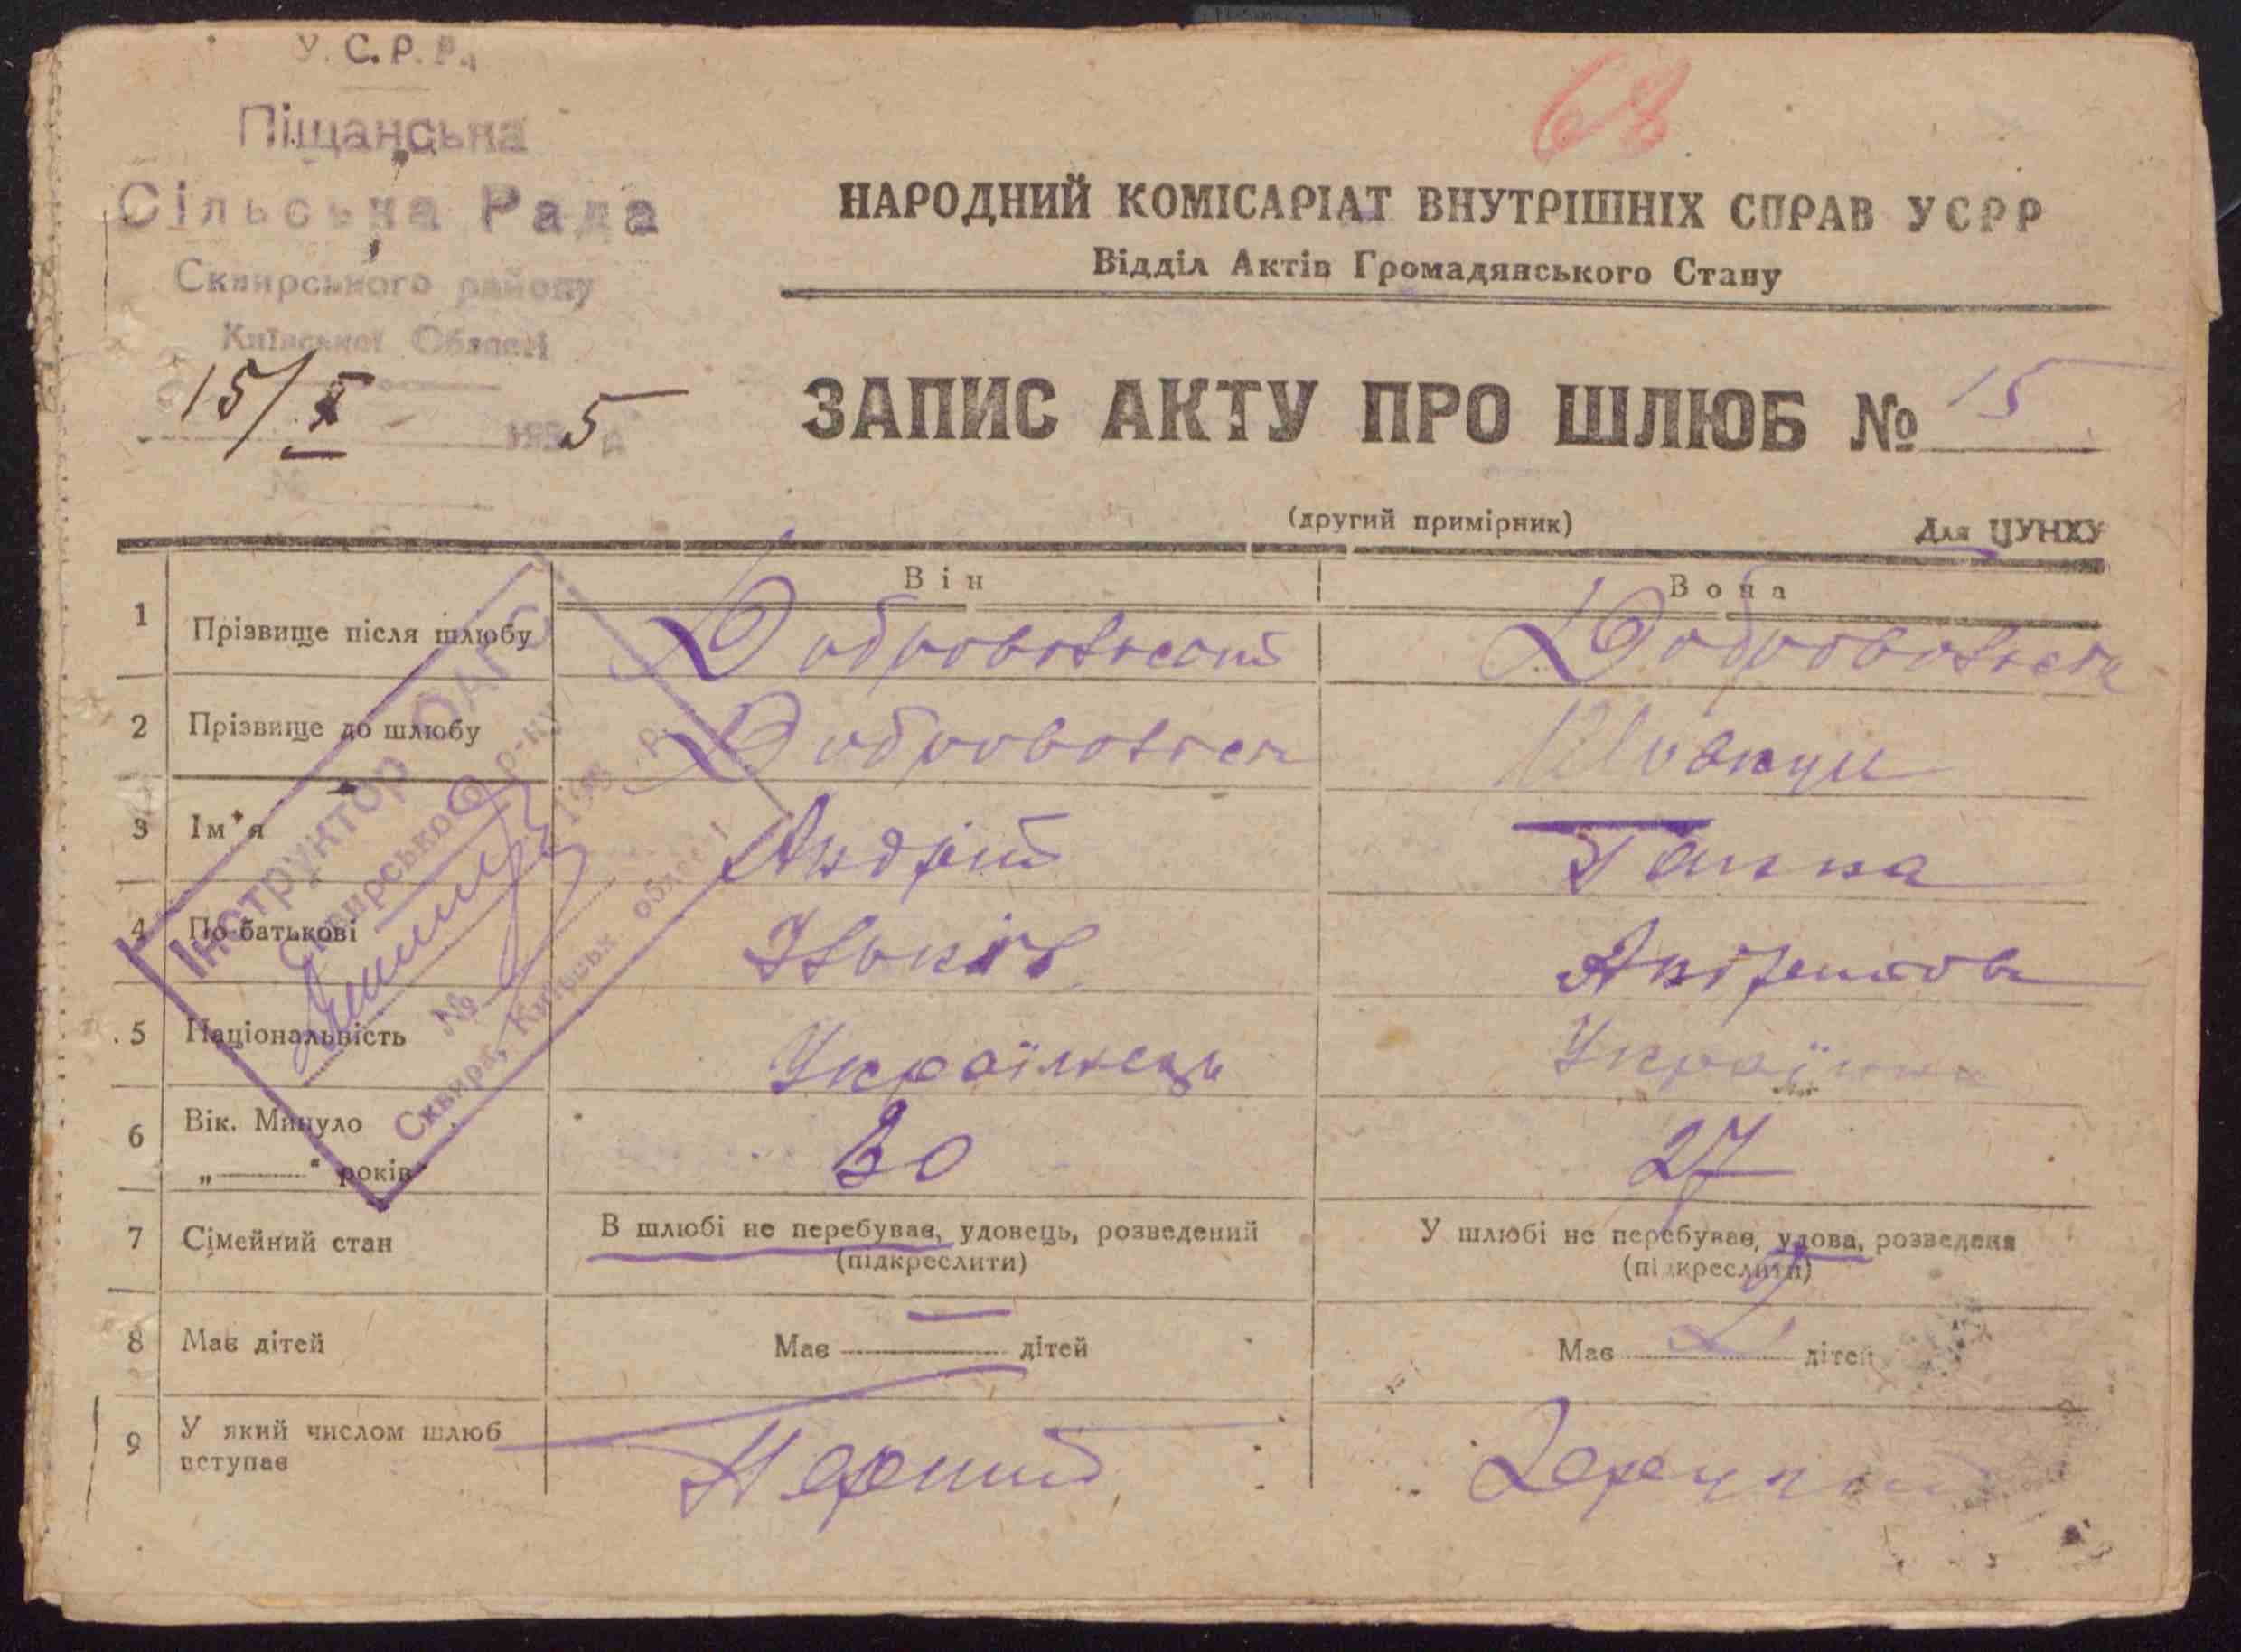 У.С.Р.Р.
Піщанська
Сільська Рада
Сквирського району
Київської Області
15/X 1935 р.
№
68
НАРОДНИЙ КОМІСАРІАТ ВНУТРІШНІХ СПРАВ УСРР
Відділ Актів Громадянського Стану
ЗАПИС АКТУ ПРО ШЛЮБ № 15
(другий примірник) Для ЦУНХУ
Він Вона
1 Прізвище після шлюбу
2 Прізвище до шлюбу
3 Ім'я Андрій Ганна
4 По-батькові
5 Національність Українець Українка
6 Вік. Минуло „ “ років 30 27
7 Сімейний стан В шлюбі не перебував, удовець, розведений У шлюбі не перебував, удова, розведена
(підкреслити) (підкреслити)
8 Має дітей Має дітей Має дітей
9 У який числом шлюб Перший
вступає
Інструктор ОАГС
Сквирського р-ну
№ 193 р.
Сквира, Київськ. області